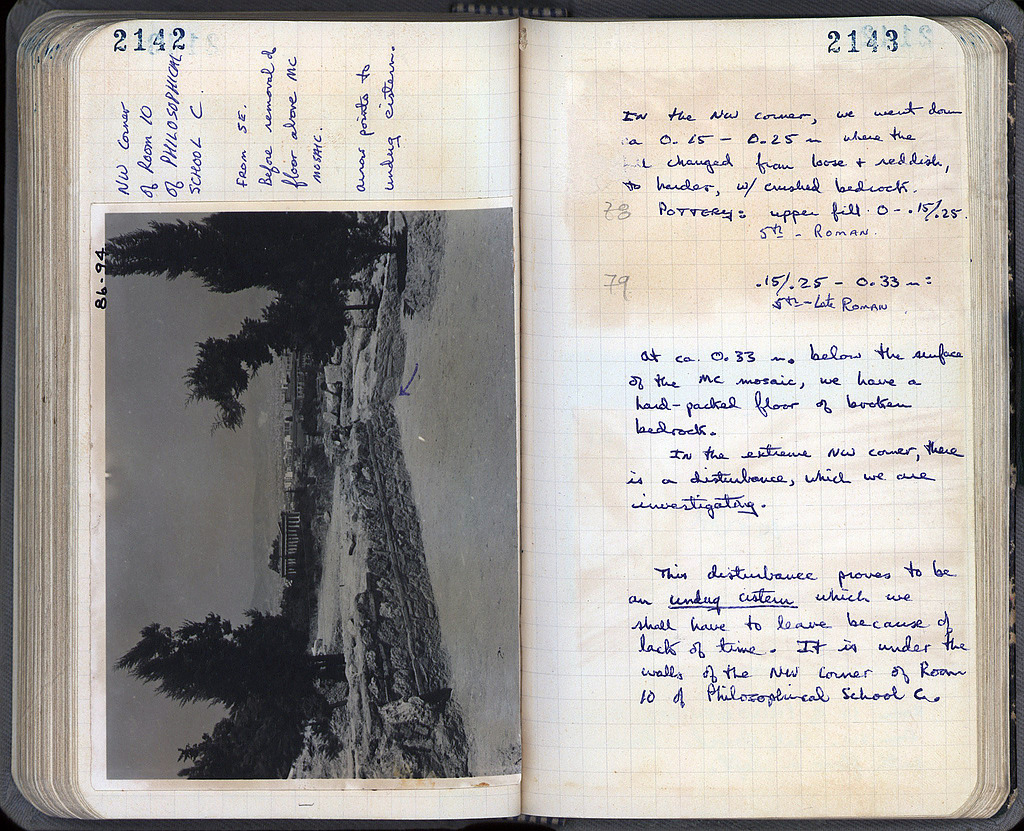 2142
NW Corner
of Room 10
of PHILOSOPHICAL
SCHOOL C.
FROM SE.
Before removal of
floor above MC
MOSAIC.
arrow points to
undug cistern.
86-94
2143
IN the NW corner, we went down
ca 0.15 - 0.25 m where the
fill changed from loose + reddish,
to harder, w/ crushed bedrock.
78 POTTERY: upper fill 0 - .15/.25
5th - ROMAN.
79 .15/.25 - 0.33 m:
5th - Late ROMAN
At ca. 0.33 m. below the surface
of the MC mosaic, we have a
hard-packed floor of broken
bedrock.
IN the extreme NW corner, there
is a disturbance, which we are
investigating.
This disturbance proves to be
an undug cistern which we
shall have to leave because of
lack of time. It is under the
walls of the NW corner of Room
10 of Philosophical School C.